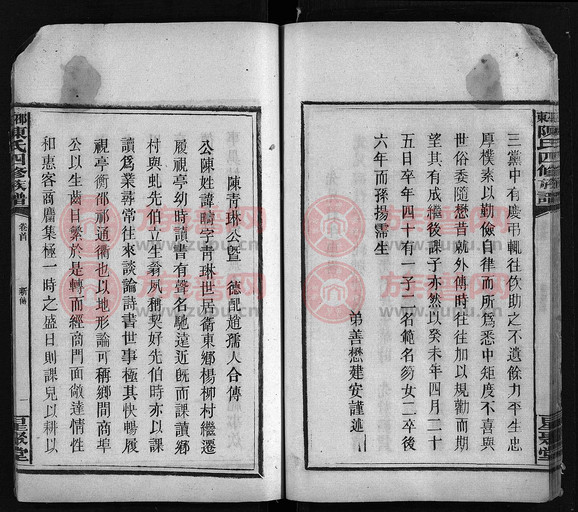 三黨中有慶弔輒往佽助之不遺餘力平生忠
厚樸素以勤儉自律而所爲悉中矩度不喜與
世俗委隨懋昔就外傅時往往加以規勸而期
望其有成繼後課子亦然以癸未年四月二十
五日卒年四十有一子二名範名芴女二卒後
六年而孫揚霈生
弟善懋建安謹述
陳青琳公暨 德配趙孺人合傳
公陳姓諱疇字青琳世居衛東鄉楊柳村繼遷
履視亭幼時讀書有聲名馳遠近既而課讀鄉
村與虬先伯立生翁夙稱契好先伯時亦以課
讀爲業尋常往來談論詩書世事極其快暢履
視亭衡邵祁通衢也以地形論可稱鄉間商埠
公以生齒日繁於是轉而經商門面敞達情性
和惠客商麕集極一時之盛日則課兒以耕以
陳氏四修族譜
卷首
星聚堂
陳氏四修族譜
星聚堂
方志书网
www.zupu.cn